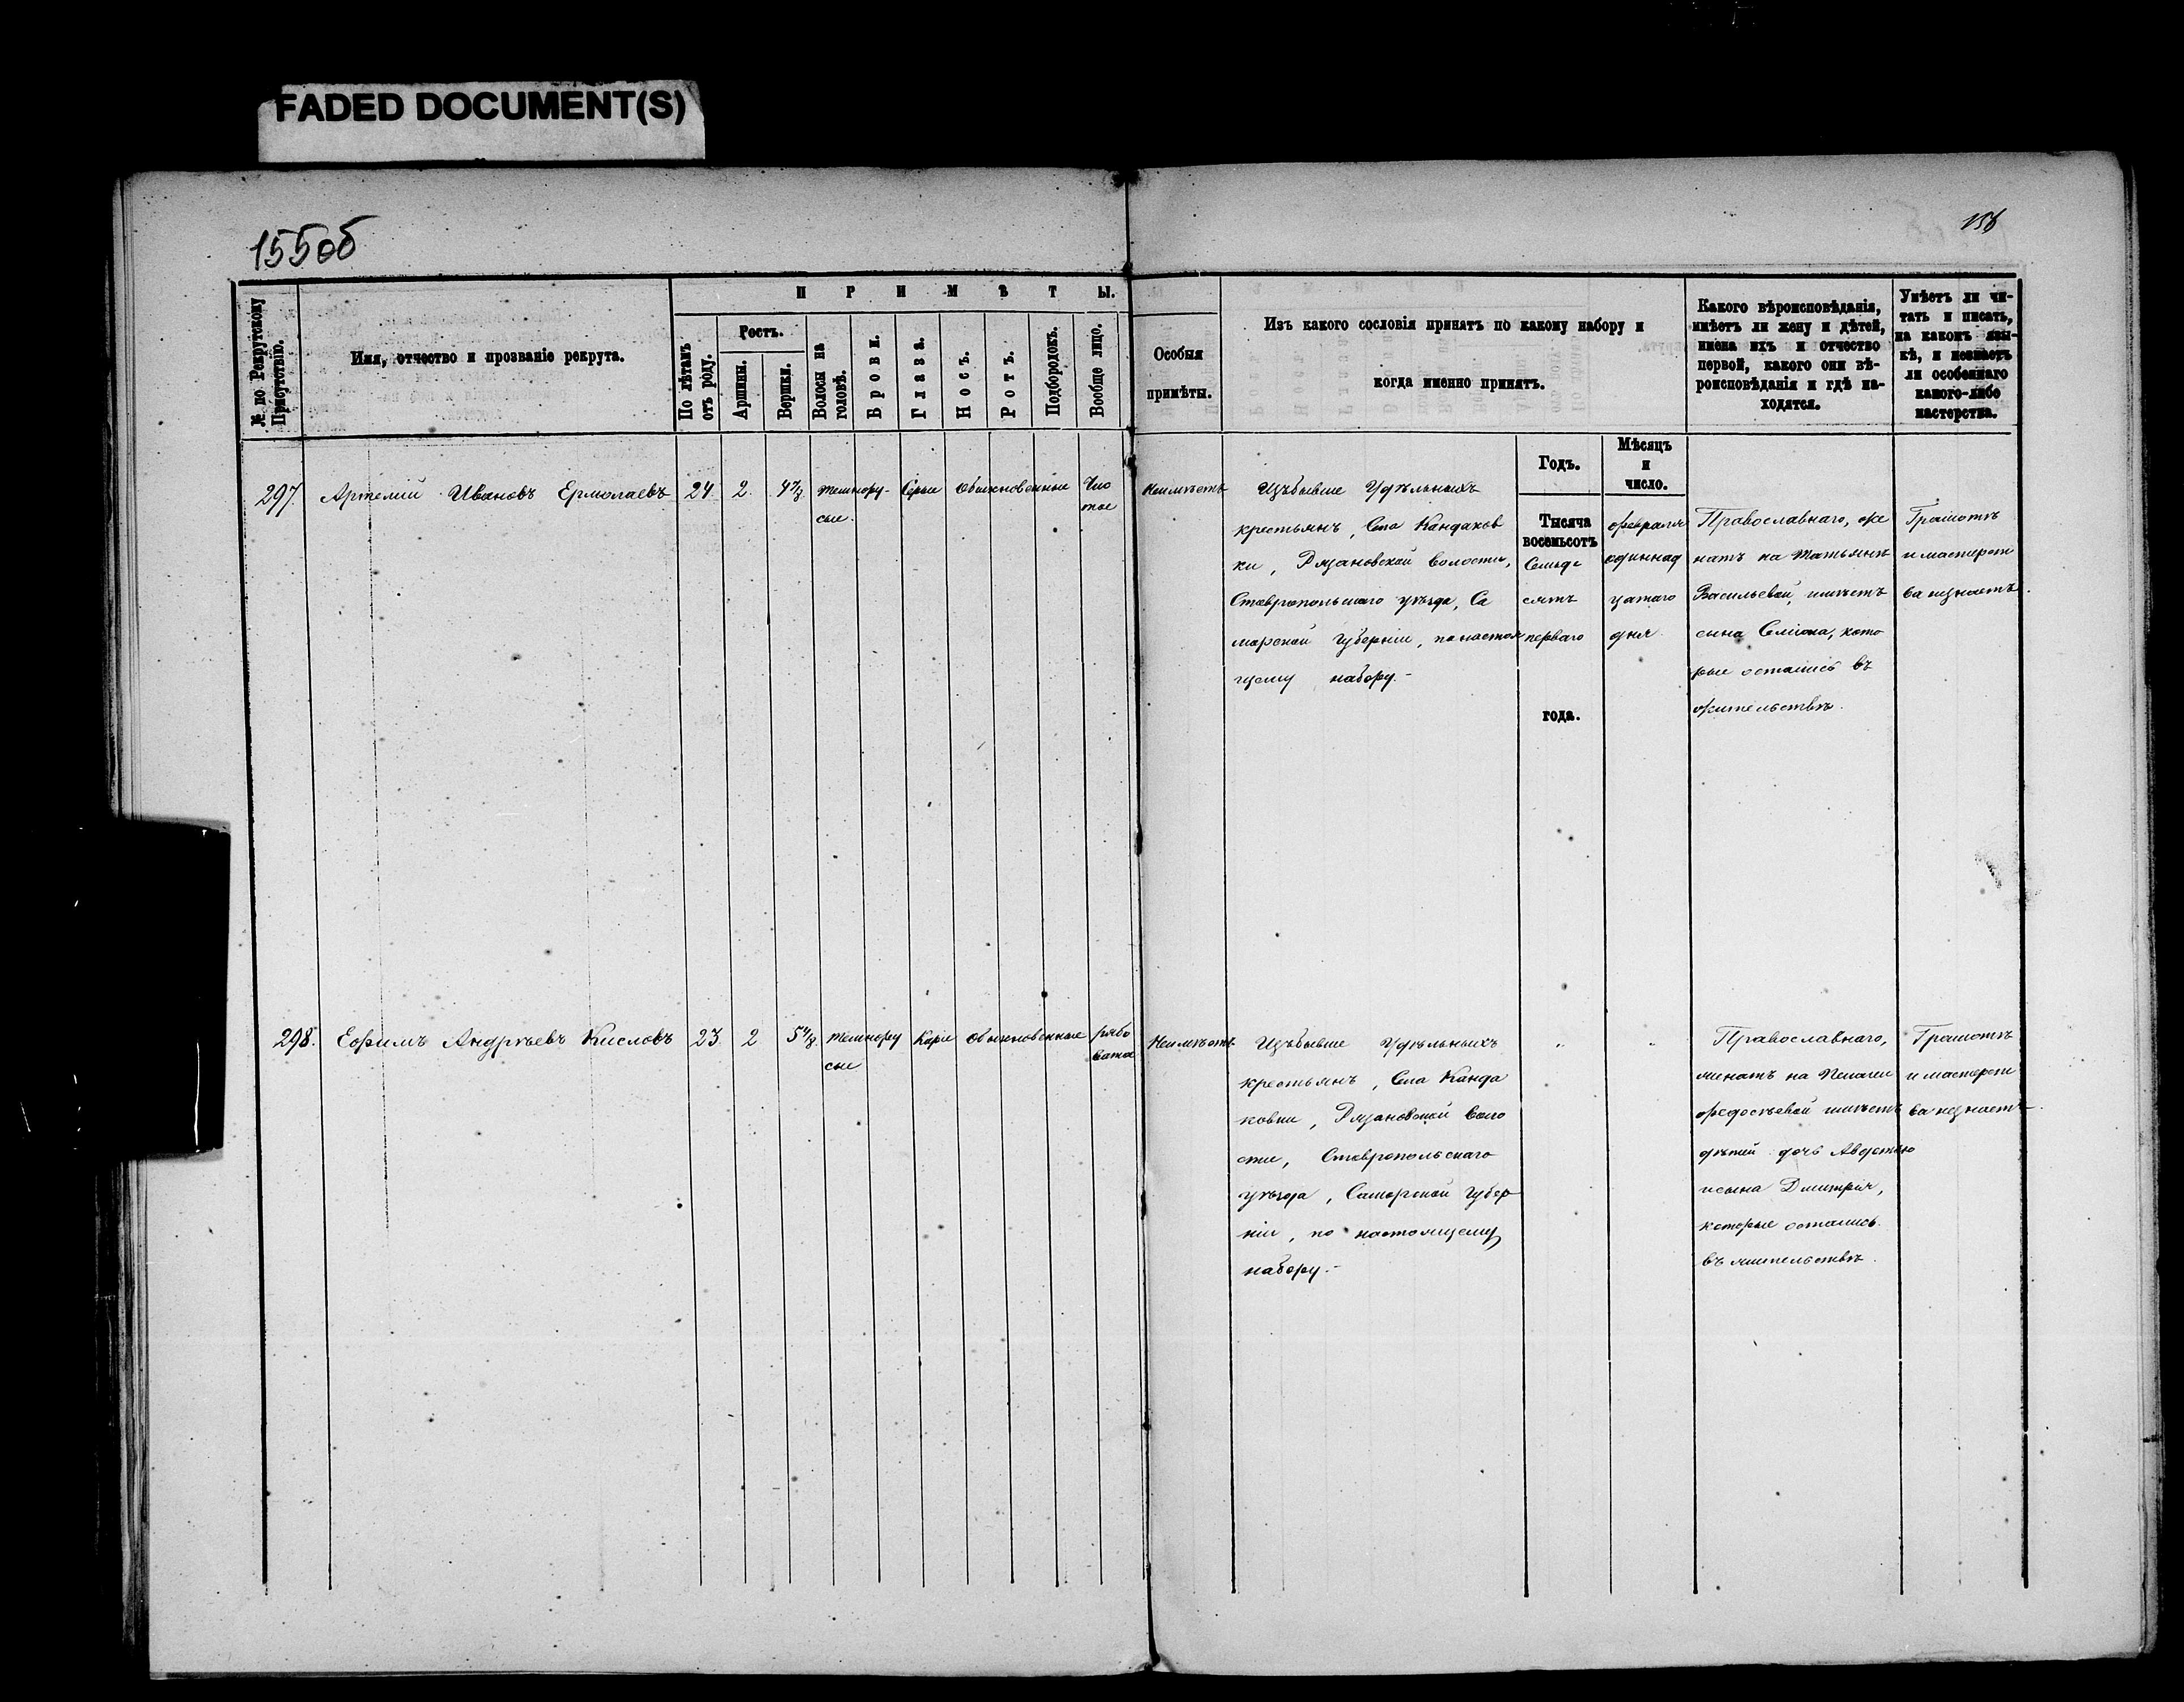 FADED DOCUMENT(S)
155об
156
№ по Рекрутскому Присутствію.
Имя, отчество и прозваніе рекрута.
ПРИМѢТЫ.
По лѣтамъ отъ роду.
Ростъ.
Аршины.
Вершки.
Волосы на головѣ.
Брови.
Глаза.
Носъ.
Ротъ.
Подбородокъ.
Вообще лицо.
Особыя
примѣты.
Изъ какого сословія принятъ по какому набору и
когда именно принятъ.
Какого вѣроисповѣданія,
имѣетъ ли жену и дѣтей,
имена ихъ и отчество
первой, какого они вѣ-
роисповѣданія и гдѣ на-
ходятся.
Умѣетъ ли чи-
тать и писать,
на какомъ язы-
кѣ, и незнаетъ
ли особеннаго
какого-либо
мастерства.
Годъ.
Мѣсяцъ
и
число.
297. Артемій Ивановъ Ермолаевъ 24 2. 4 7/8 темнору- Серые Обыкновенные Чис
сые. тое
Неимѣетъ
Изъбывше Удѣльныхъ
крестьянъ, Села Кандаков
ки, Рязановской волости,
Ставропольскаго уѣзда, Са
марской Губерніи, по настоя
щему набору.-
Тысяча
восемьсотъ
Семьде
сятъ
перваго
года.
февраля
одиннад
цатаго
дня.
Православнаго, же
натъ на Татьянѣ
Васильевой, имѣетъ
сына Семіона, кото
рые остались въ
жительствѣ.
Грамотѣ
и мастерст
ва незнаетъ.
298. Ефимъ Андрѣевъ Кисловъ 23 2 5 4/8 темнору Каріе Обыкновенные рябо
сые ватое
Неимѣетъ
Изъбывше Удѣльныхъ
крестьянъ, Села Канда
ковки, Рязановской воло
сти, Ставропольскаго
уѣзда, Самарской Губер
ніи, по настоящему
набору.-
" "
Православнаго,
женатъ на Пелагеи
Федосѣевой имѣетъ
дѣтей дочь Авдотью
и сына Дмитрія,
которые остались
въ жительствѣ.
Грамотѣ
и мастерст
ва незнаетъ.